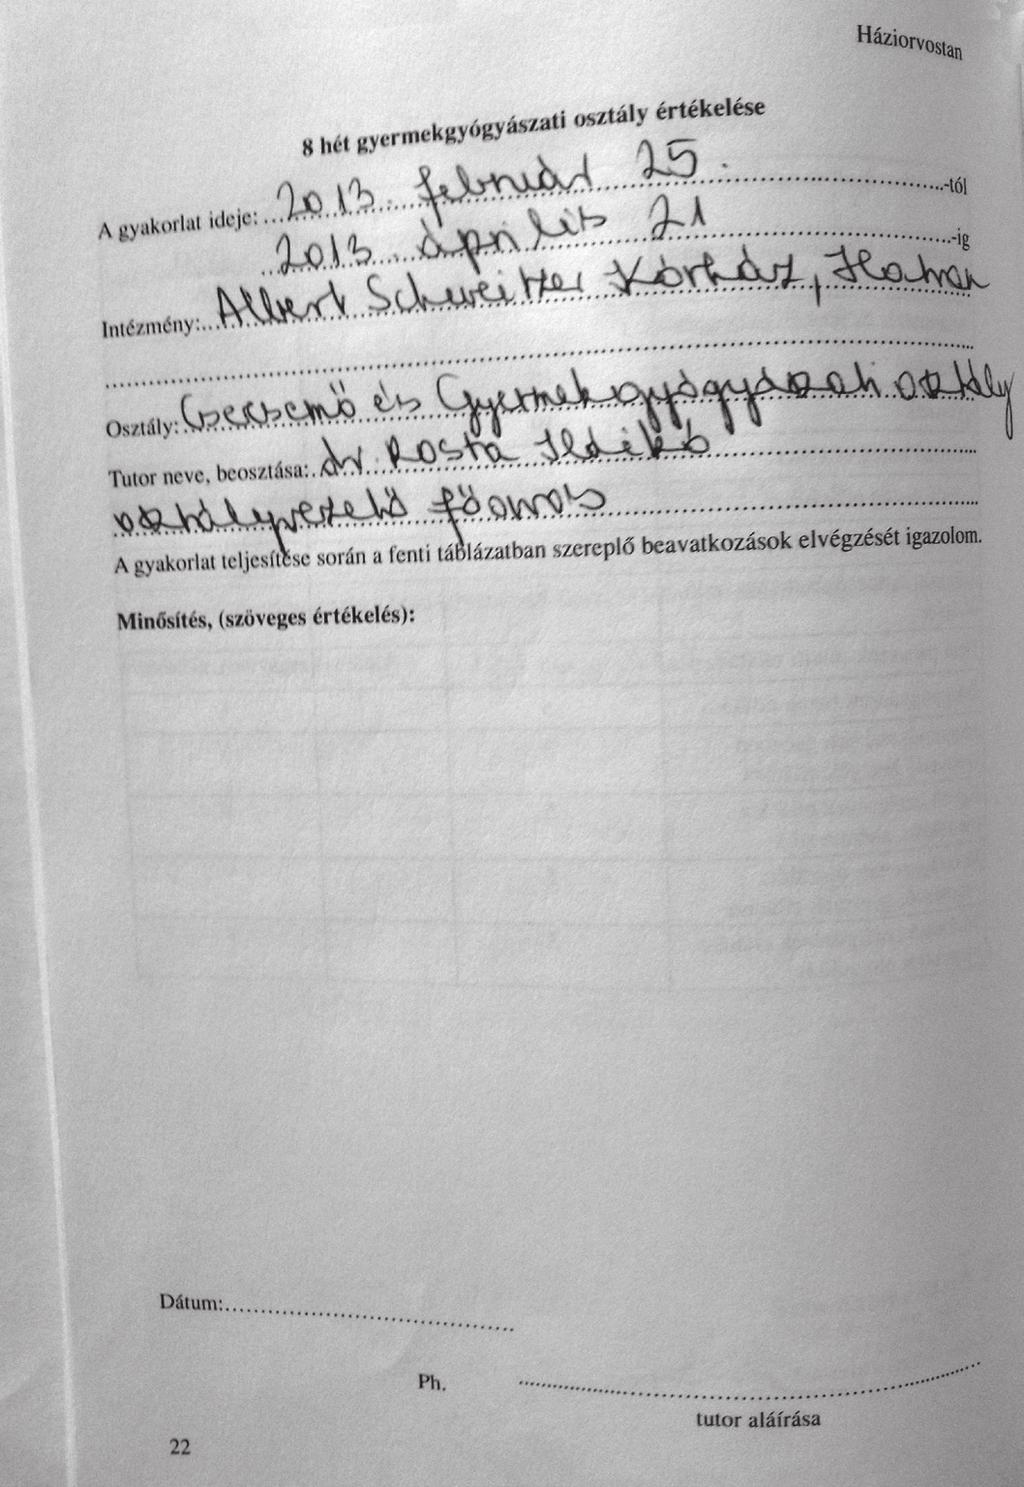 Háziorvostan
8 hét gyermekgyógyászati osztály értékelése
A gyakorlat ideje: 2013. február 25. -tól
2013. április 21 -ig
Intézmény: Albert Schweitzer Kórház, Hatvan
Osztály: Csecsemő és Gyermekgyógyászati osztály
Tutor neve, beosztása: dr Rosta Ildikó
osztályvezető főorvos
A gyakorlat teljesítése során a fenti táblázatban szereplő beavatkozások elvégzését igazolom.
Minősítés, (szöveges értékelés):
Dátum:
Ph.
tutor aláírása
22